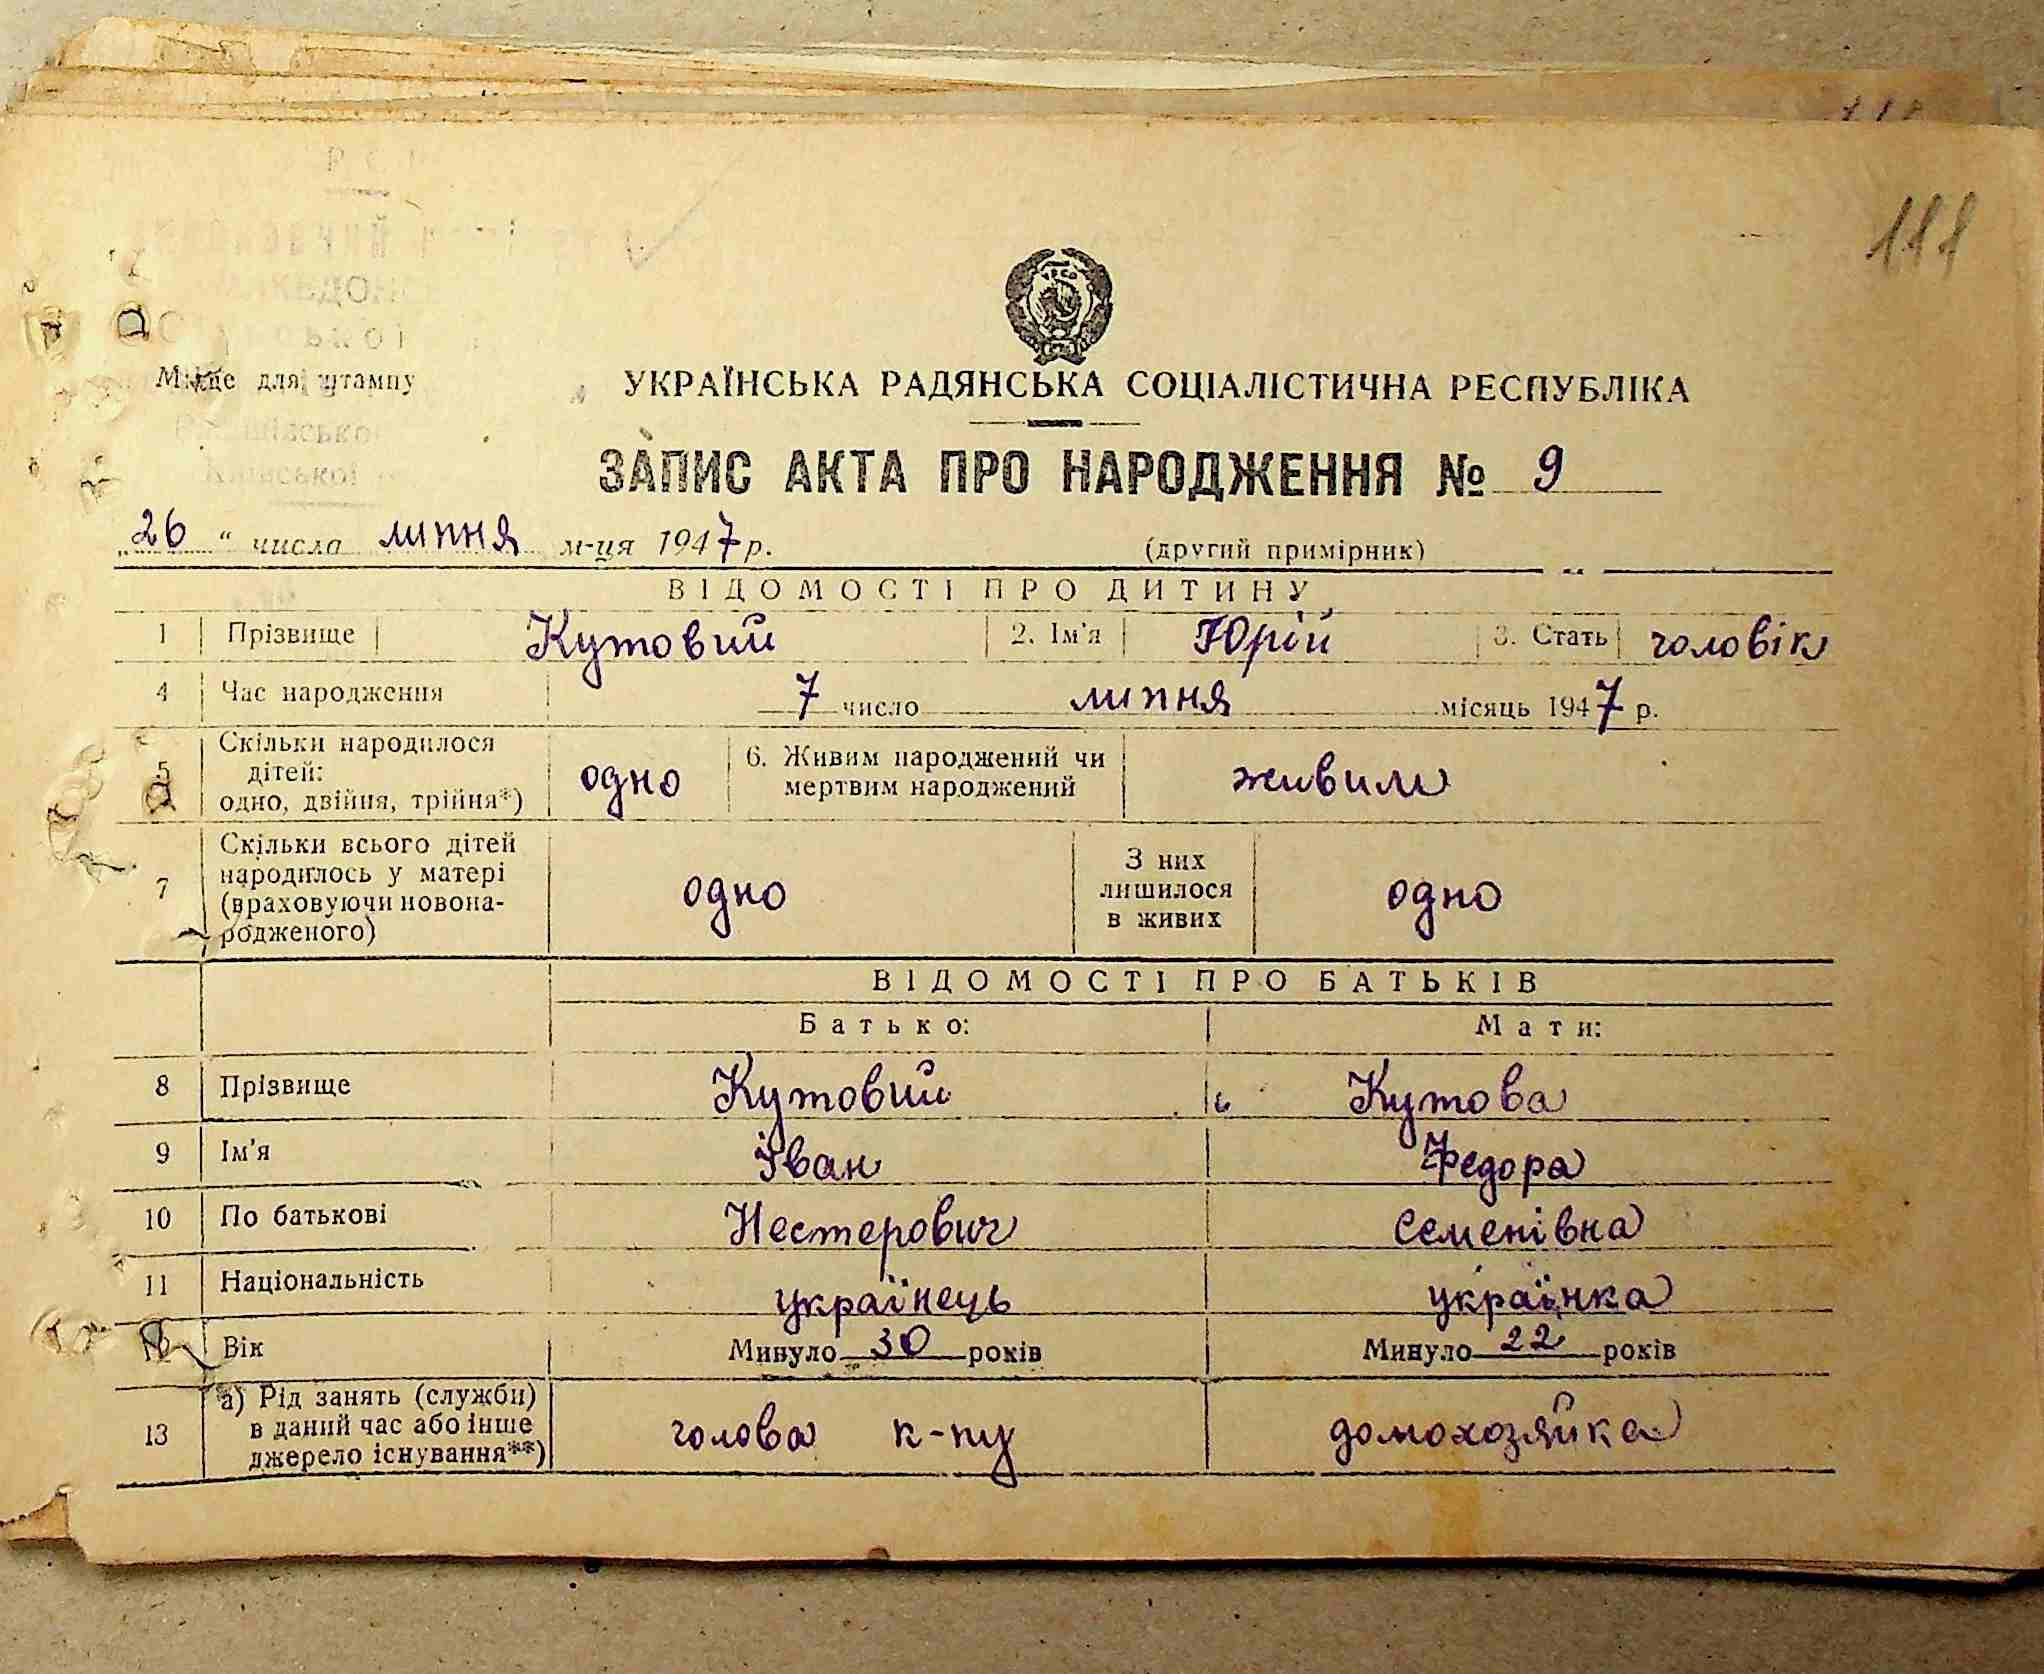 111
Місце для штампу
УКРАЇНСЬКА РАДЯНСЬКА СОЦІАЛІСТИЧНА РЕСПУБЛІКА
ЗАПИС АКТА ПРО НАРОДЖЕННЯ № 9
„26“ числа липня м-ця 1947 р.
(другий примірник)
ВІДОМОСТІ ПРО ДИТИНУ
1 Прізвище Кутовий 2. Ім'я Юрій 3. Стать чоловік
4 Час народження 7 число липня місяць 1947 р.
5 Скільки народилося
дітей:
одно, двійня, трійня*) одно
6. Живим народжений чи
мертвим народжений живим
7 Скільки всього дітей
народилось у матері
(враховуючи новона-
родженого) одно
З них
лишилося
в живих одно
ВІДОМОСТІ ПРО БАТЬКІВ
Батько: Мати:
8 Прізвище Кутовий Кутова
9 Ім'я Іван Федора
10 По батькові Нестерович Семенівна
11 Національність українець українка
12 Вік Минуло 30 років Минуло 22 років
13 а) Рід занять (служби)
в даний час або інше
джерело існування**) голова к-пу домохозяйка